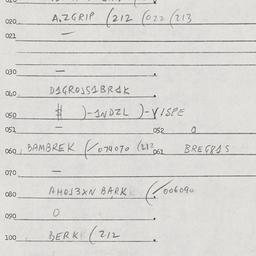 020 A.ZGRIP (212 (022 (213
021 —
030 —
040 D1GROJS1BR1K
050 $ )-1NDZL )-VISPE
051 — 052 0
060 BAMBREK (/074070 (212 061 BREG81S
070 —
080 AHO13XN BARK (/006090
090 0
100 BERK (212